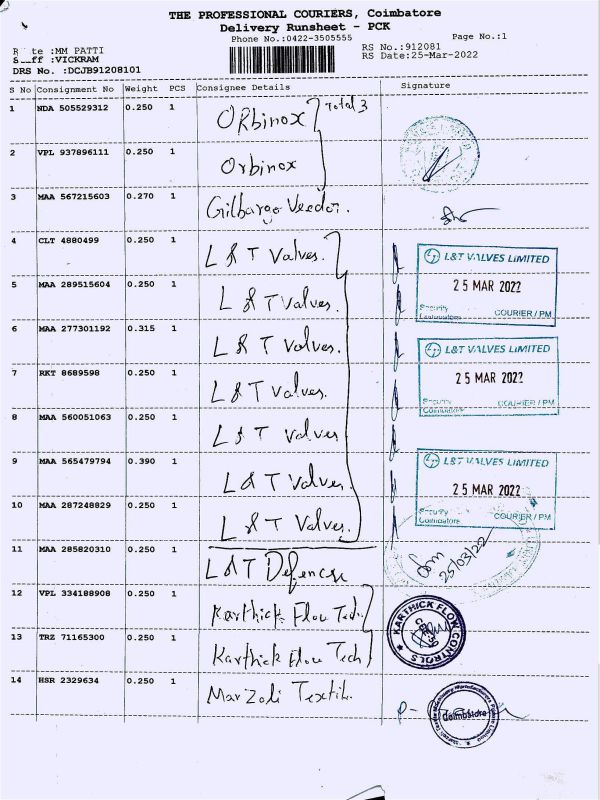 THE PROFESSIONAL COURIERS, Coimbatore
Delivery Runsheet - PCK
Phone No.:0422-3505555
Page No.:1
R te :MM PATTI
RS No.:912081
S ff :VICKRAM
RS Date:25-Mar-2022
DRS No. :DCJB91208101
S No Consignment No Weight PCS Consignee Details Signature
1 NDA 505529312 0.250 1 Orbinox Total 3
2 VPL 937896111 0.250 1 Orbinox
3 MAA 567215603 0.270 1 Gilbargo Veedor.
4 CLT 4880499 0.250 1 L & T Valves.
L&T VALVES LIMITED
25 MAR 2022
Security COURIER / PM
Coimbatore
5 MAA 289515604 0.250 1 L & T Valves.
6 MAA 277301192 0.315 1 L & T Valves.
L&T VALVES LIMITED
25 MAR 2022
Security COURIER / PM
Coimbatore
7 RKT 8689598 0.250 1 L & T Valves.
8 MAA 560051063 0.250 1 L & T Valves
9 MAA 565479794 0.390 1 L & T Valves.
L&T VALVES LIMITED
25 MAR 2022
Security COURIER / PM
Coimbatore
10 MAA 287248829 0.250 1 L & T Valves.
11 MAA 285820310 0.250 1 L & T Defence
25/03/22
12 VPL 334188908 0.250 1 Karthick Flow Tech
KARTHICK FLOW CONTROLS
13 TRZ 71165300 0.250 1 Karthick Flow Tech
14 HSR 2329634 0.250 1 Marzoli Textile.
Coimbatore